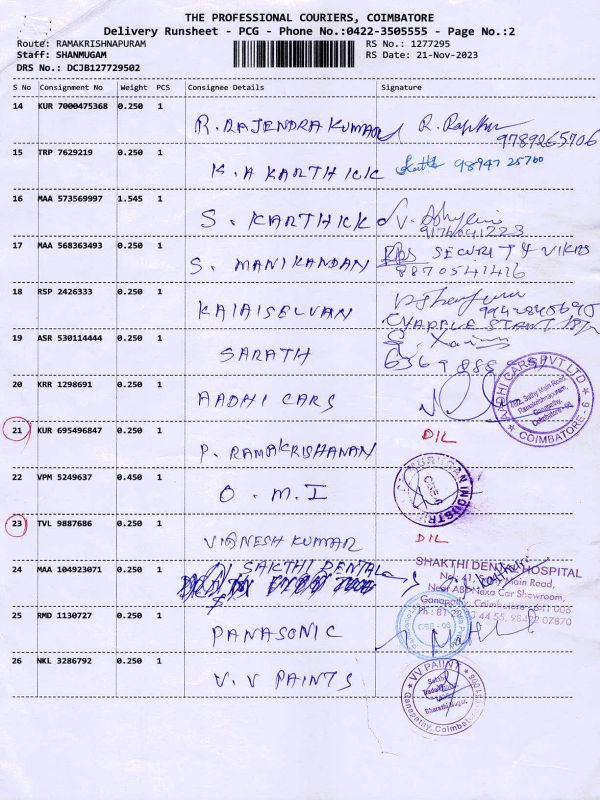 THE PROFESSIONAL COURIERS, COIMBATORE
Delivery Runsheet - PCG - Phone No.:0422-3505555 - Page No.:2
Route: RAMAKRISHNAPURAM RS No.: 1277295
Staff: SHANMUGAM RS Date: 21-Nov-2023
DRS No.: DCJB127729502
S No Consignment No Weight PCS Consignee Details Signature
14 KUR 7000475368 0.250 1 R. RAJENDRA KUMAR 9789265706
15 TRP 7629219 0.250 1 K. A KARTHICK 98947 25760
16 MAA 573569997 1.545 1 S. KARTHICK
17 MAA 568363493 0.250 1 S. MANIKANDAN SECURITY VIKAS
8870541416
18 RSP 2426333 0.250 1 KALAISELVAN
19 ASR 530114444 0.250 1 SARATH
20 KRR 1298691 0.250 1 AADHI CARS AADHI CARS PVT LTD
COIMBATORE - 6
21 KUR 695496847 0.250 1 P. RAMAKRISHANAN DIL
22 VPM 5249637 0.450 1 O. M. I
23 TVL 9887686 0.250 1 VIGNESH KUMAR DIL
24 MAA 104923071 0.250 1 SAKTHI DENTAL SHAKTHI DENTAL HOSPITAL
Main Road,
Nexa Car Showroom,
Ganapathy, Coimbatore - 641 006
25 RMD 1130727 0.250 1 PANASONIC
26 NKL 3286792 0.250 1 V. V PAINTS VV PAIINT